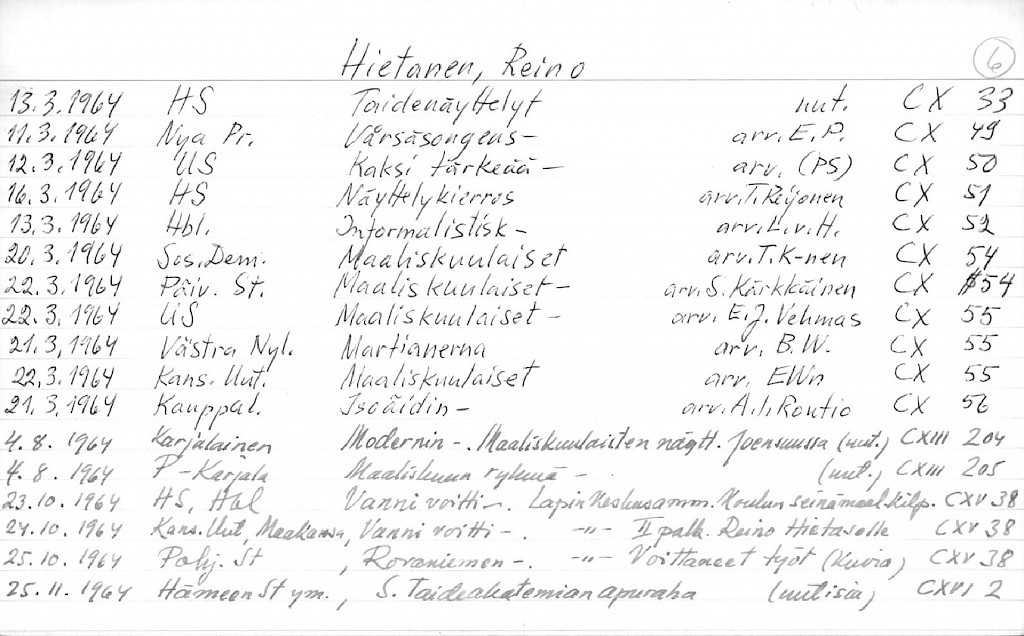 Hietanen, Reino 6
13.3.1964 HS Taidenäyttelyt uut. CX 33
11.3.1964 Nya Pr. Vårsäsongens - arv. E.P. CX 49
12.3.1964 US Kaksi tärkeää - arv. (PS) CX 50
16.3.1964 HS Näyttelykierros arv. T. Reijonen CX 51
13.3.1964 Hbl. Informalistisk - arv. L.v.H. CX 52
20.3.1964 Sos. Dem. Maaliskuulaiset arv. T.K-nen CX 54
22.3.1964 Päiv. St. Maaliskuulaiset - arv. S. Kärkkäinen CX 54
22.3.1964 US Maaliskuulaiset - arv. E.J. Vehmas CX 55
21.3.1964 Västra Nyl. Martianerna arv. B.W. CX 55
22.3.1964 Kans. Uut. Maaliskuulaiset arv. EWn CX 55
21.3.1964 Kauppal. Isoäidin - arv. A.I. Routio CX 56
4.8. 1964 Karjalainen Modernin -. Maaliskuulaisten näytt. Joensuussa (uut.) CXIII 204
4.8. 1964 P-Karjala Maaliskuun ryhmä - (uut.) CXIII 205
23.10. 1964 HS, Hbl Vanni voitti -. Lapin Keskusamm. Koulun seinämaal. kilp. CXV 38
24.10. 1964 Kans. Uut, Maakansa, Vanni voitti -. -"- II palk. Reino Hietaselle CXV 38
25.10. 1964 Pohj. St, Rovaniemen -. -"- Voittaneet työt (kuvia) CXV 38
25.11. 1964 Hämeen St ym., S. Taideakatemian apuraha (uutisia) CXVI 2